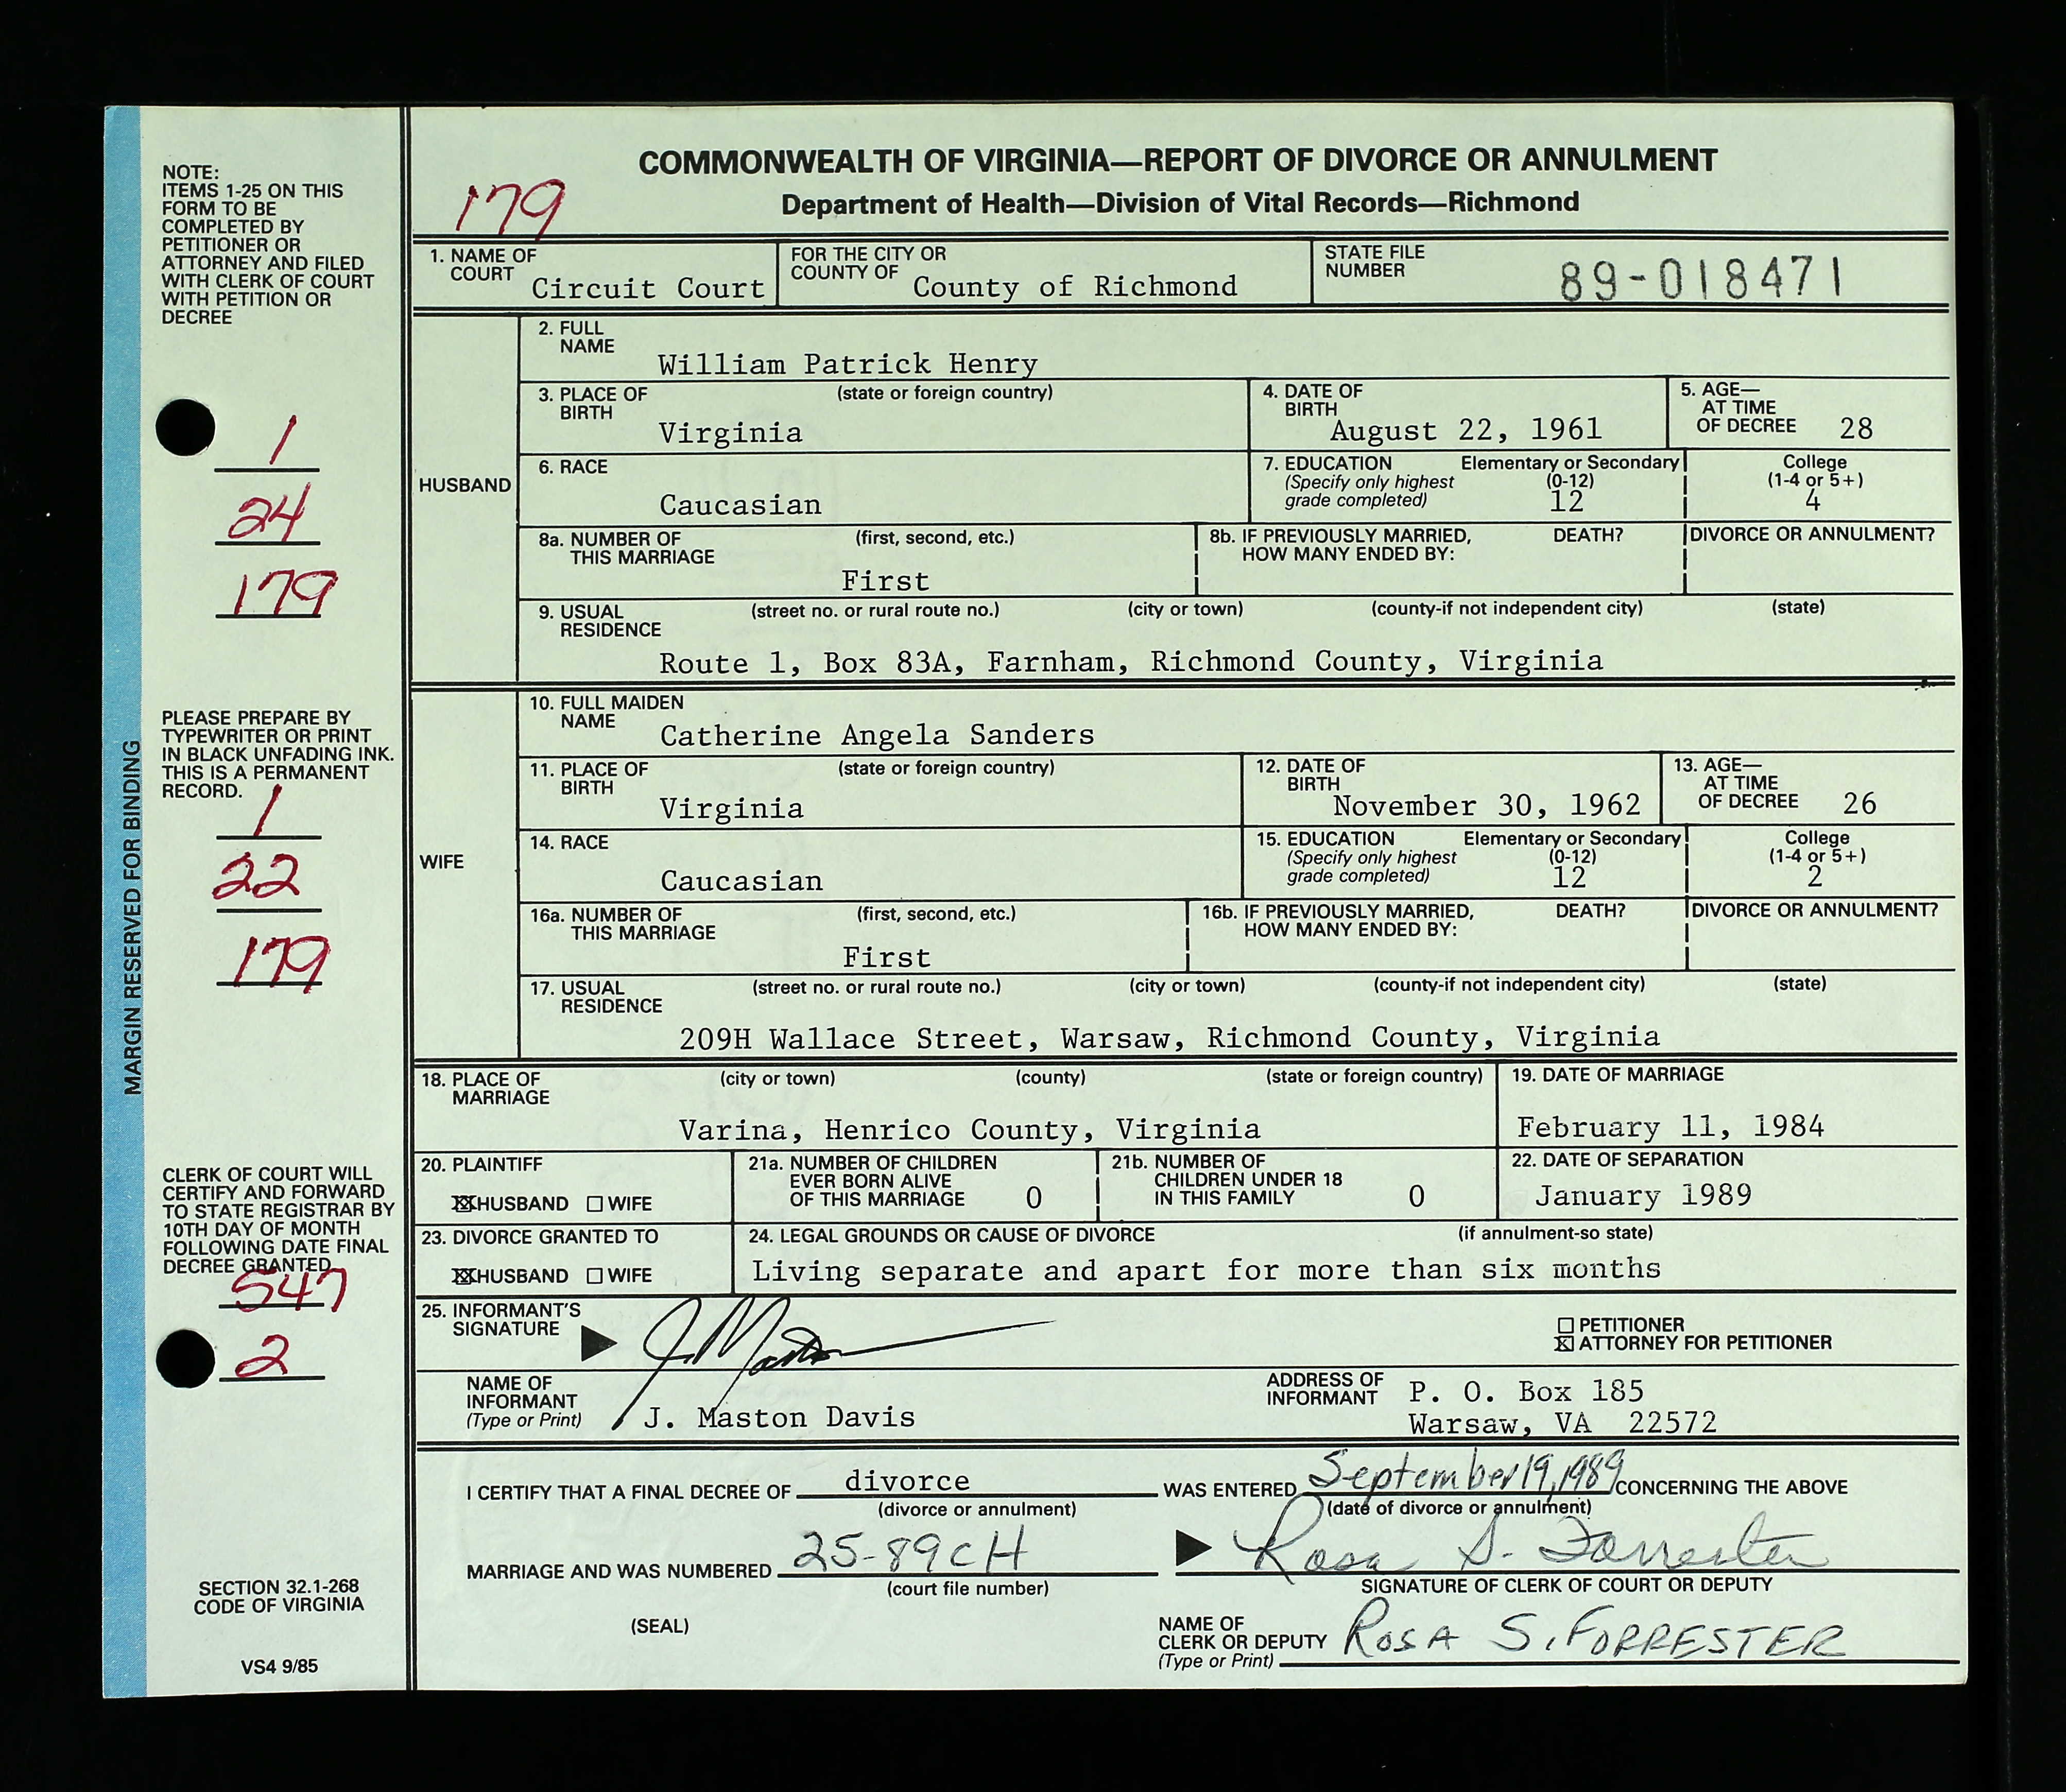 COMMONWEALTH OF VIRGINIA—REPORT OF DIVORCE OR ANNULMENT
Department of Health—Division of Vital Records—Richmond
179
NOTE:
ITEMS 1-25 ON THIS
FORM TO BE
COMPLETED BY
PETITIONER OR
ATTORNEY AND FILED
WITH CLERK OF COURT
WITH PETITION OR
DECREE
1
24
179
PLEASE PREPARE BY
TYPEWRITER OR PRINT
IN BLACK UNFADING INK.
THIS IS A PERMANENT
RECORD.
1
22
179
CLERK OF COURT WILL
CERTIFY AND FORWARD
TO STATE REGISTRAR BY
10TH DAY OF MONTH
FOLLOWING DATE FINAL
DECREE GRANTED
547
2
SECTION 32.1-268
CODE OF VIRGINIA
VS4 9/85
MARGIN RESERVED FOR BINDING
1. NAME OF COURT Circuit Court
FOR THE CITY OR COUNTY OF County of Richmond
STATE FILE NUMBER 89-018471
HUSBAND
2. FULL NAME William Patrick Henry
3. PLACE OF BIRTH (state or foreign country) Virginia
4. DATE OF BIRTH August 22, 1961
5. AGE— AT TIME OF DECREE 28
6. RACE Caucasian
7. EDUCATION (Specify only highest grade completed) Elementary or Secondary (0-12) 12
College (1-4 or 5+) 4
8a. NUMBER OF THIS MARRIAGE (first, second, etc.) First
8b. IF PREVIOUSLY MARRIED, HOW MANY ENDED BY: DEATH? DIVORCE OR ANNULMENT?
9. USUAL RESIDENCE (street no. or rural route no.) (city or town) (county-if not independent city) (state)
Route 1, Box 83A, Farnham, Richmond County, Virginia
WIFE
10. FULL MAIDEN NAME Catherine Angela Sanders
11. PLACE OF BIRTH (state or foreign country) Virginia
12. DATE OF BIRTH November 30, 1962
13. AGE— AT TIME OF DECREE 26
14. RACE Caucasian
15. EDUCATION (Specify only highest grade completed) Elementary or Secondary (0-12) 12
College (1-4 or 5+) 2
16a. NUMBER OF THIS MARRIAGE (first, second, etc.) First
16b. IF PREVIOUSLY MARRIED, HOW MANY ENDED BY: DEATH? DIVORCE OR ANNULMENT?
17. USUAL RESIDENCE (street no. or rural route no.) (city or town) (county-if not independent city) (state)
209H Wallace Street, Warsaw, Richmond County, Virginia
18. PLACE OF MARRIAGE (city or town) (county) (state or foreign country)
Varina, Henrico County, Virginia
19. DATE OF MARRIAGE
February 11, 1984
20. PLAINTIFF
XX HUSBAND ☐ WIFE
21a. NUMBER OF CHILDREN EVER BORN ALIVE OF THIS MARRIAGE 0
21b. NUMBER OF CHILDREN UNDER 18 IN THIS FAMILY 0
22. DATE OF SEPARATION
January 1989
23. DIVORCE GRANTED TO
XX HUSBAND ☐ WIFE
24. LEGAL GROUNDS OR CAUSE OF DIVORCE (if annulment-so state)
Living separate and apart for more than six months
25. INFORMANT'S SIGNATURE J. Maston
☐ PETITIONER
☒ ATTORNEY FOR PETITIONER
NAME OF INFORMANT (Type or Print) J. Maston Davis
ADDRESS OF INFORMANT P. O. Box 185
Warsaw, VA 22572
I CERTIFY THAT A FINAL DECREE OF divorce WAS ENTERED September 19, 1989 CONCERNING THE ABOVE
(divorce or annulment) (date of divorce or annulment)
MARRIAGE AND WAS NUMBERED 25-89CH Rosa S. Forrester
(court file number) SIGNATURE OF CLERK OF COURT OR DEPUTY
(SEAL)
NAME OF CLERK OR DEPUTY (Type or Print) ROSA S. FORRESTER